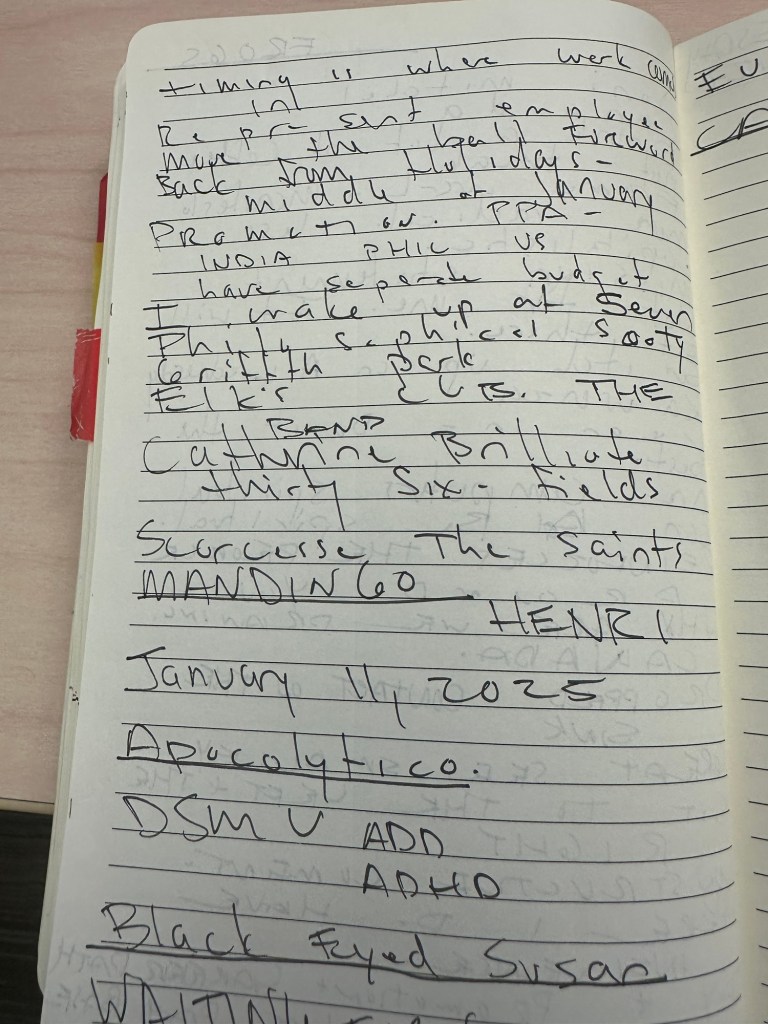 timing is where work
in
Represent employee
move the ball Foreword
Back from Holidays -
middle of January
PRomotion. PPA -
INDIA PHIL US
have separate budget
I wake up at Seven
Philosophical Sooty
Griffith park
Elk's THE
BAND
Cathrine Brilliate
thirty Six - Fields
Scorcerse The Saints
MANDINGO
HENRI
January 11, 2025
Apocolyptico.
DSM V ADD
ADHD
Black Eyed Susan
EV